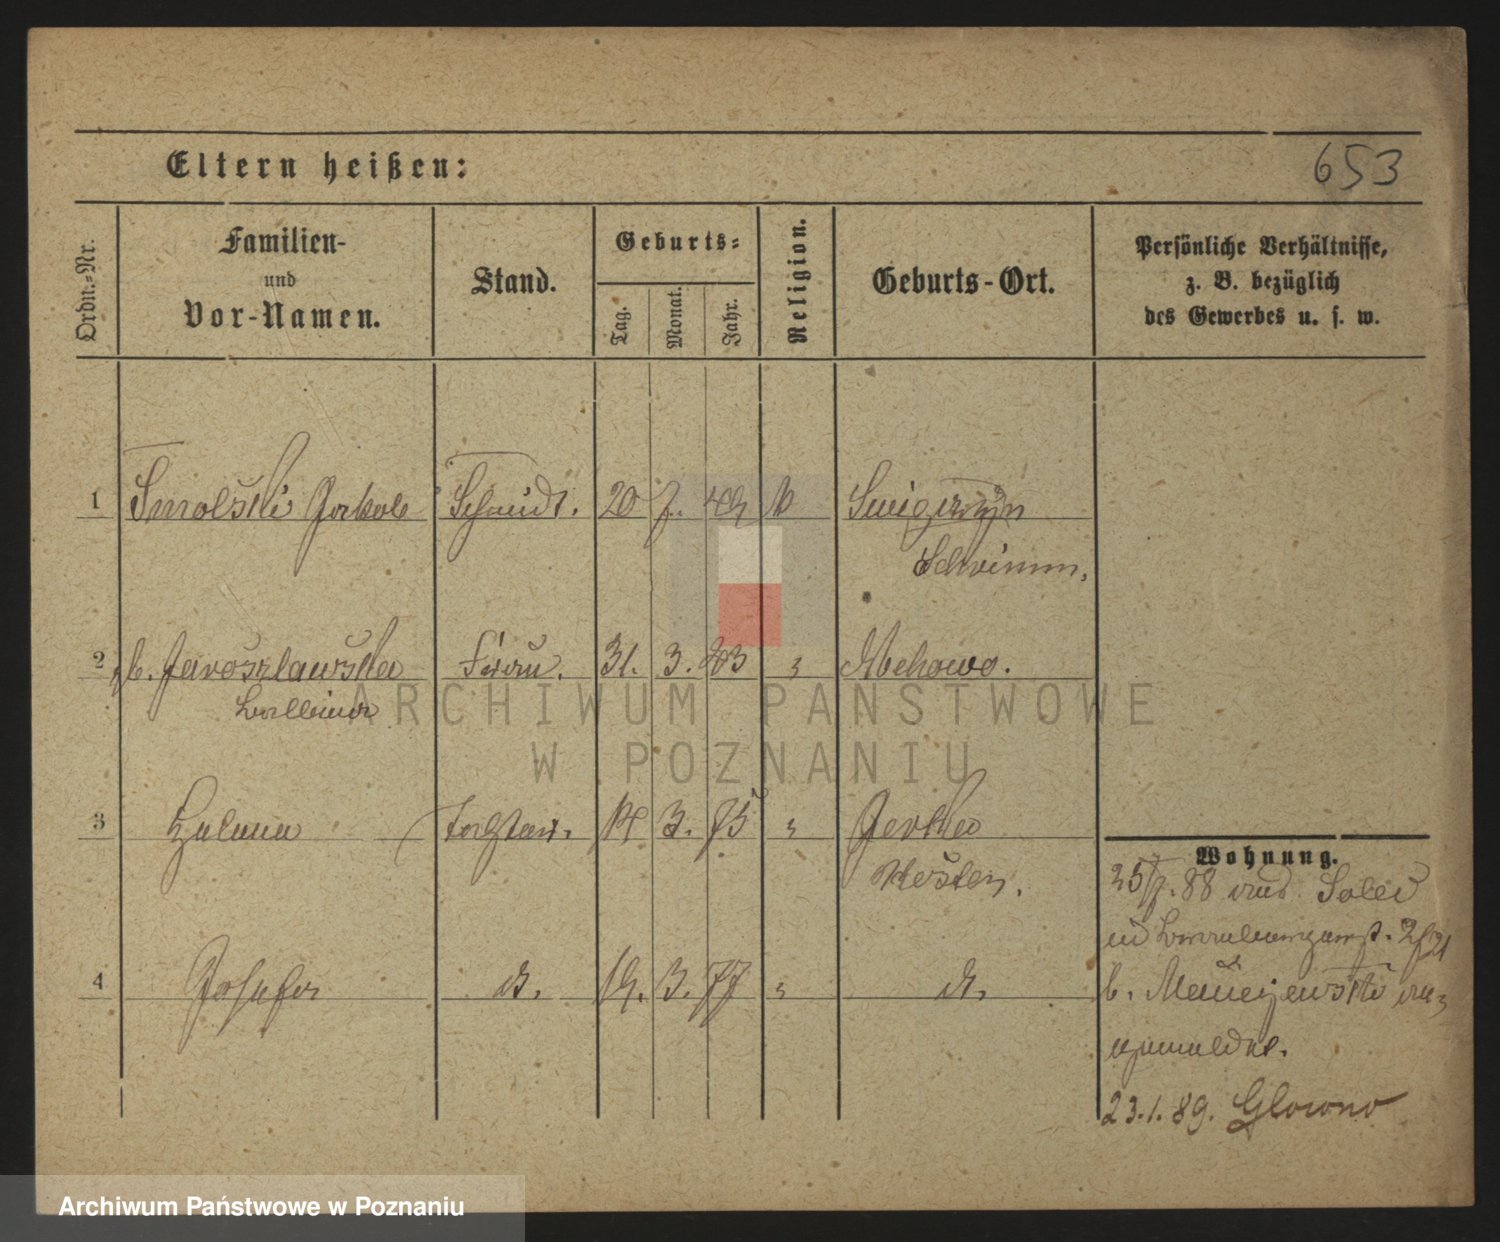 Eltern heißen:
653
Ordn.-Nr.
Familien-
und
Vor-Namen.
Stand.
Geburts-
Tag.
Monat.
Jahr.
Religion.
Geburts-Ort.
Persönliche Verhältnisse,
z. B. bezüglich
des Gewerbes u. s. w.
1 Smolski Jakob Schmidt. 20 7. 49 k
Schrimm.
2 Jaroszlawska Frau. 31. 3. 53 " Mchowo.
3 Helena Tochter. 14 3. 75 " Jerka
Kosten.
4 Josefa d. 19. 3. 77 " d.
Wohnung.
25/7. 88 aus
in
b.
angemeldet.
23.1.89. Glowno
ARCHIWUM PAŃSTWOWE
W POZNANIU
Archiwum Państwowe w Poznaniu